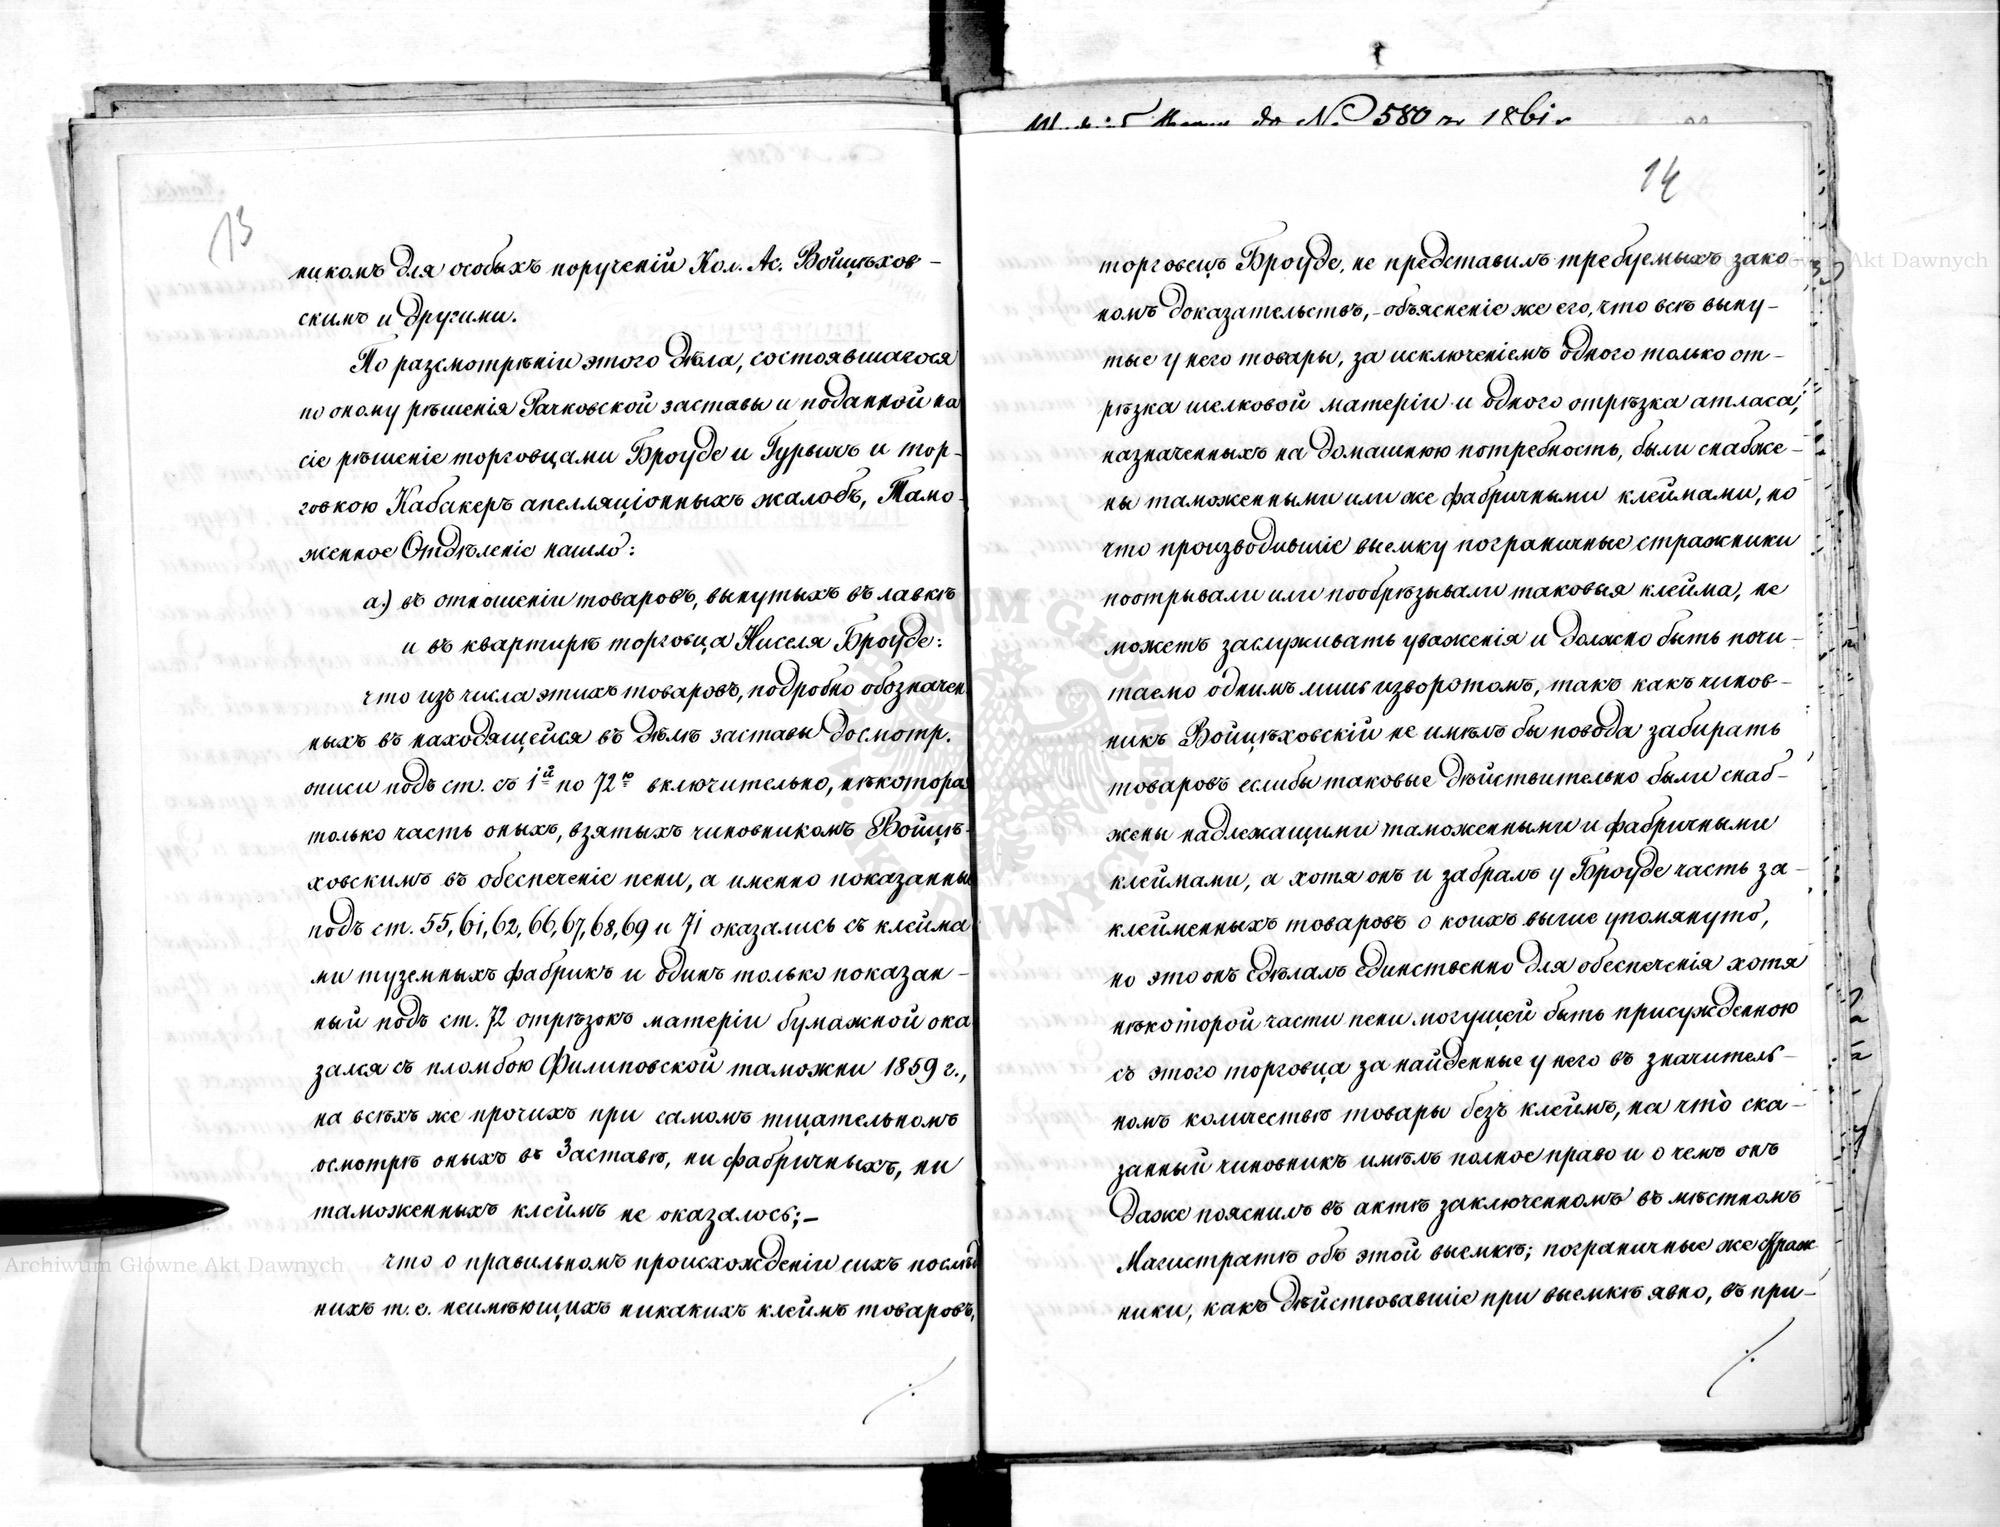 13
никомъ для особыхъ порученій Кол. Ас. Войцѣхов-
скимъ и другими.
По разсмотрѣніи этого дѣла, состоявшагося
по оному рѣшенія Рачковской заставы и поданной на
сіе рѣшеніе торговцами Броуде и Гурвичъ и тор-
говкою Кабакеръ апелляціонныхъ жалобъ, Тамо-
женное Отдѣленіе нашло:
а.) въ отношеніи товаровъ, вынутыхъ въ лавкѣ
и въ квартирѣ торговца Киселя Броуде:
что изъ числа этихъ товаровъ, подробно обозначен
ныхъ въ находящейся въ дѣлѣ заставы досмотр.
описи подъ ст. съ 1й по 72ю включительно, нѣкоторая
только часть оныхъ, взятыхъ чиновникомъ Войцѣ-
ховскимъ въ обеспеченіе пени, а именно показанные
подъ ст. 55, 61, 62, 66, 67, 68, 69 и 71 оказались съ клейма
ми туземныхъ фабрикъ и одинъ только показан-
ный подъ ст. 72 отрѣзокъ матеріи бумажной ока
зался съ пломбою Филиповской таможни 1859 г.,
на всѣхъ же прочихъ при самомъ тщательномъ
осмотрѣ оныхъ въ Заставѣ, ни фабричныхъ, ни
таможенныхъ клеймъ не оказалось;-
что о правильномъ происхожденіи сихъ послѣд
нихъ т. е. неимѣющихъ никакихъ клеймъ товаровъ,
./.
do № 580 z 1861 r
14
торговецъ Броуде, не представилъ требуемыхъ зако-
номъ доказательствъ,- объясненіе же его, что всѣ выну-
тые у него товары, за исключеніемъ одного только от-
рѣзка шелковой матеріи и одного отрѣзка атласа,
назначенныхъ на домашнюю потребность, были снабже-
ны таможенными или же фабричными клеймами, но
что производившіе выемку пограничные стражники
поотрывали или пообрѣзывали таковыя клейма, не
можетъ заслуживать уваженія и должно быть почи-
таемо однимъ лишь изворотомъ, такъ какъ чинов-
никъ Войцѣховскій не имѣлъ бы повода забирать
товаровъ еслибы таковые дѣйствительно были снаб-
жены надлежащими таможенными и фабричными
клеймами, а хотя онъ и забралъ у Броуде часть за-
клейменныхъ товаровъ о коихъ выше упомянуто,
но это онъ сдѣлалъ единственно для обеспеченія хотя
нѣкоторой части пени могущей быть присужденною
съ этого торговца за найденные у него въ значитель-
номъ количествѣ товары безъ клеймъ, на что ска-
занный чиновникъ имѣлъ полное право и о чемъ онъ
даже пояснилъ въ актѣ заключенномъ въ мѣстномъ
Магистратѣ объ этой выемкѣ; пограничные же страж
ники, какъ дѣйствовавшіе при выемкѣ явно, въ при-
./.
Archiwum Główne Akt Dawnych
Akt Dawnych